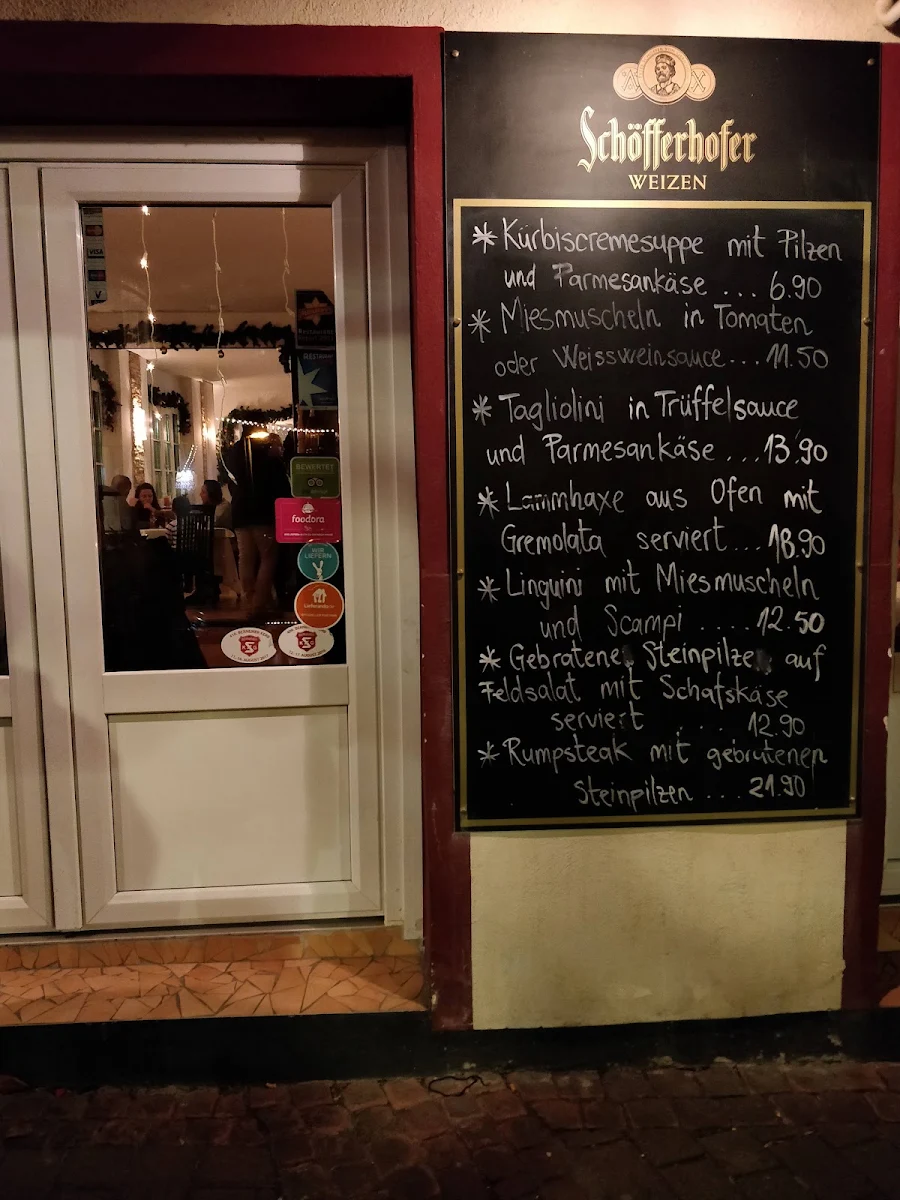 Schöfferhofer
WEIZEN
* Kürbiscremesuppe mit Pilzen
und Parmesankäse ... 6.90
* Miesmuscheln in Tomaten
oder Weissweinsauce... 11.50
* Tagliolini in Trüffelsauce
und Parmesankäse ... 13.90
* Lammhaxe aus Ofen mit
Gremolata serviert... 18.90
* Linguini mit Miesmuscheln
und Scampi .... 12.50
* Gebratene Steinpilze auf
Feldsalat mit Schafskäse
serviert . . . 12.90
* Rumpsteak mit gebratenen
Steinpilzen ... 21.90
VISA
BEWERTET
foodora
WIR
LIEFERN